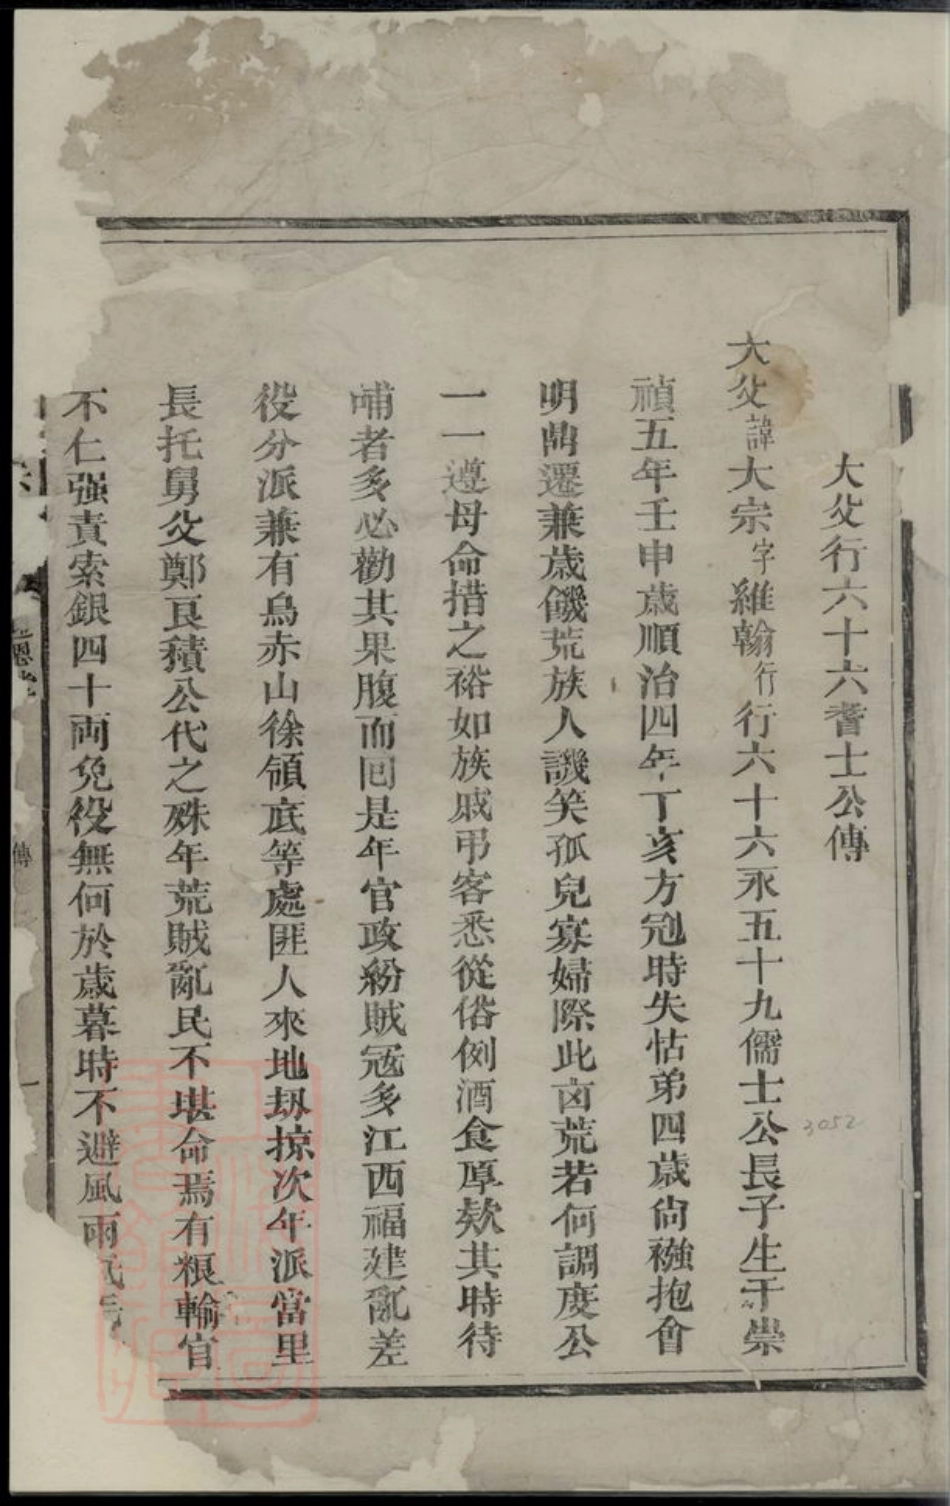 大父行六十六耆士公傳
大父諱大宗字維翰行行六十六永五十九儒士公長子生于崇
禎五年壬申歲順治四年丁亥方冠時失怙弟四歲尙襁抱會
明鼎遷兼歲饑荒族人譏笑孤兒寡婦際此凶荒若何調度公
一一遵母命措之裕如族戚弔客悉從俗例酒食厚欵其時待
哺者多必勸其果腹而囘是年官政紛賊冦多江西福建亂差
役分派兼有烏赤山徐領底等處匪人來地刼掠次年派當里
長托舅父鄭良積公代之殊年荒賊亂民不堪命焉有粮輸官
不仁强責索銀四十両免役無何於歲暮時不避風雨
傳
一
3052